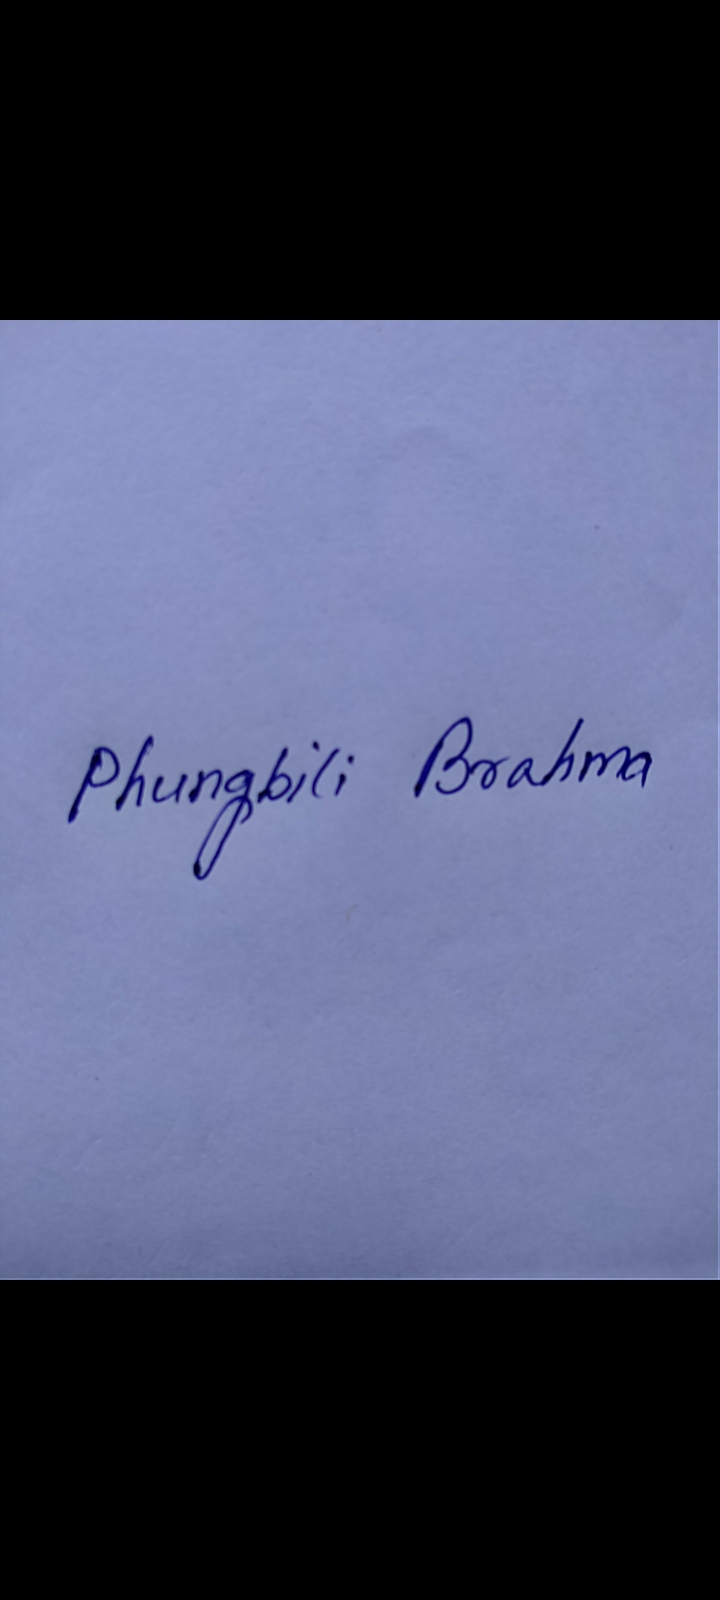 Phungbili Brahma